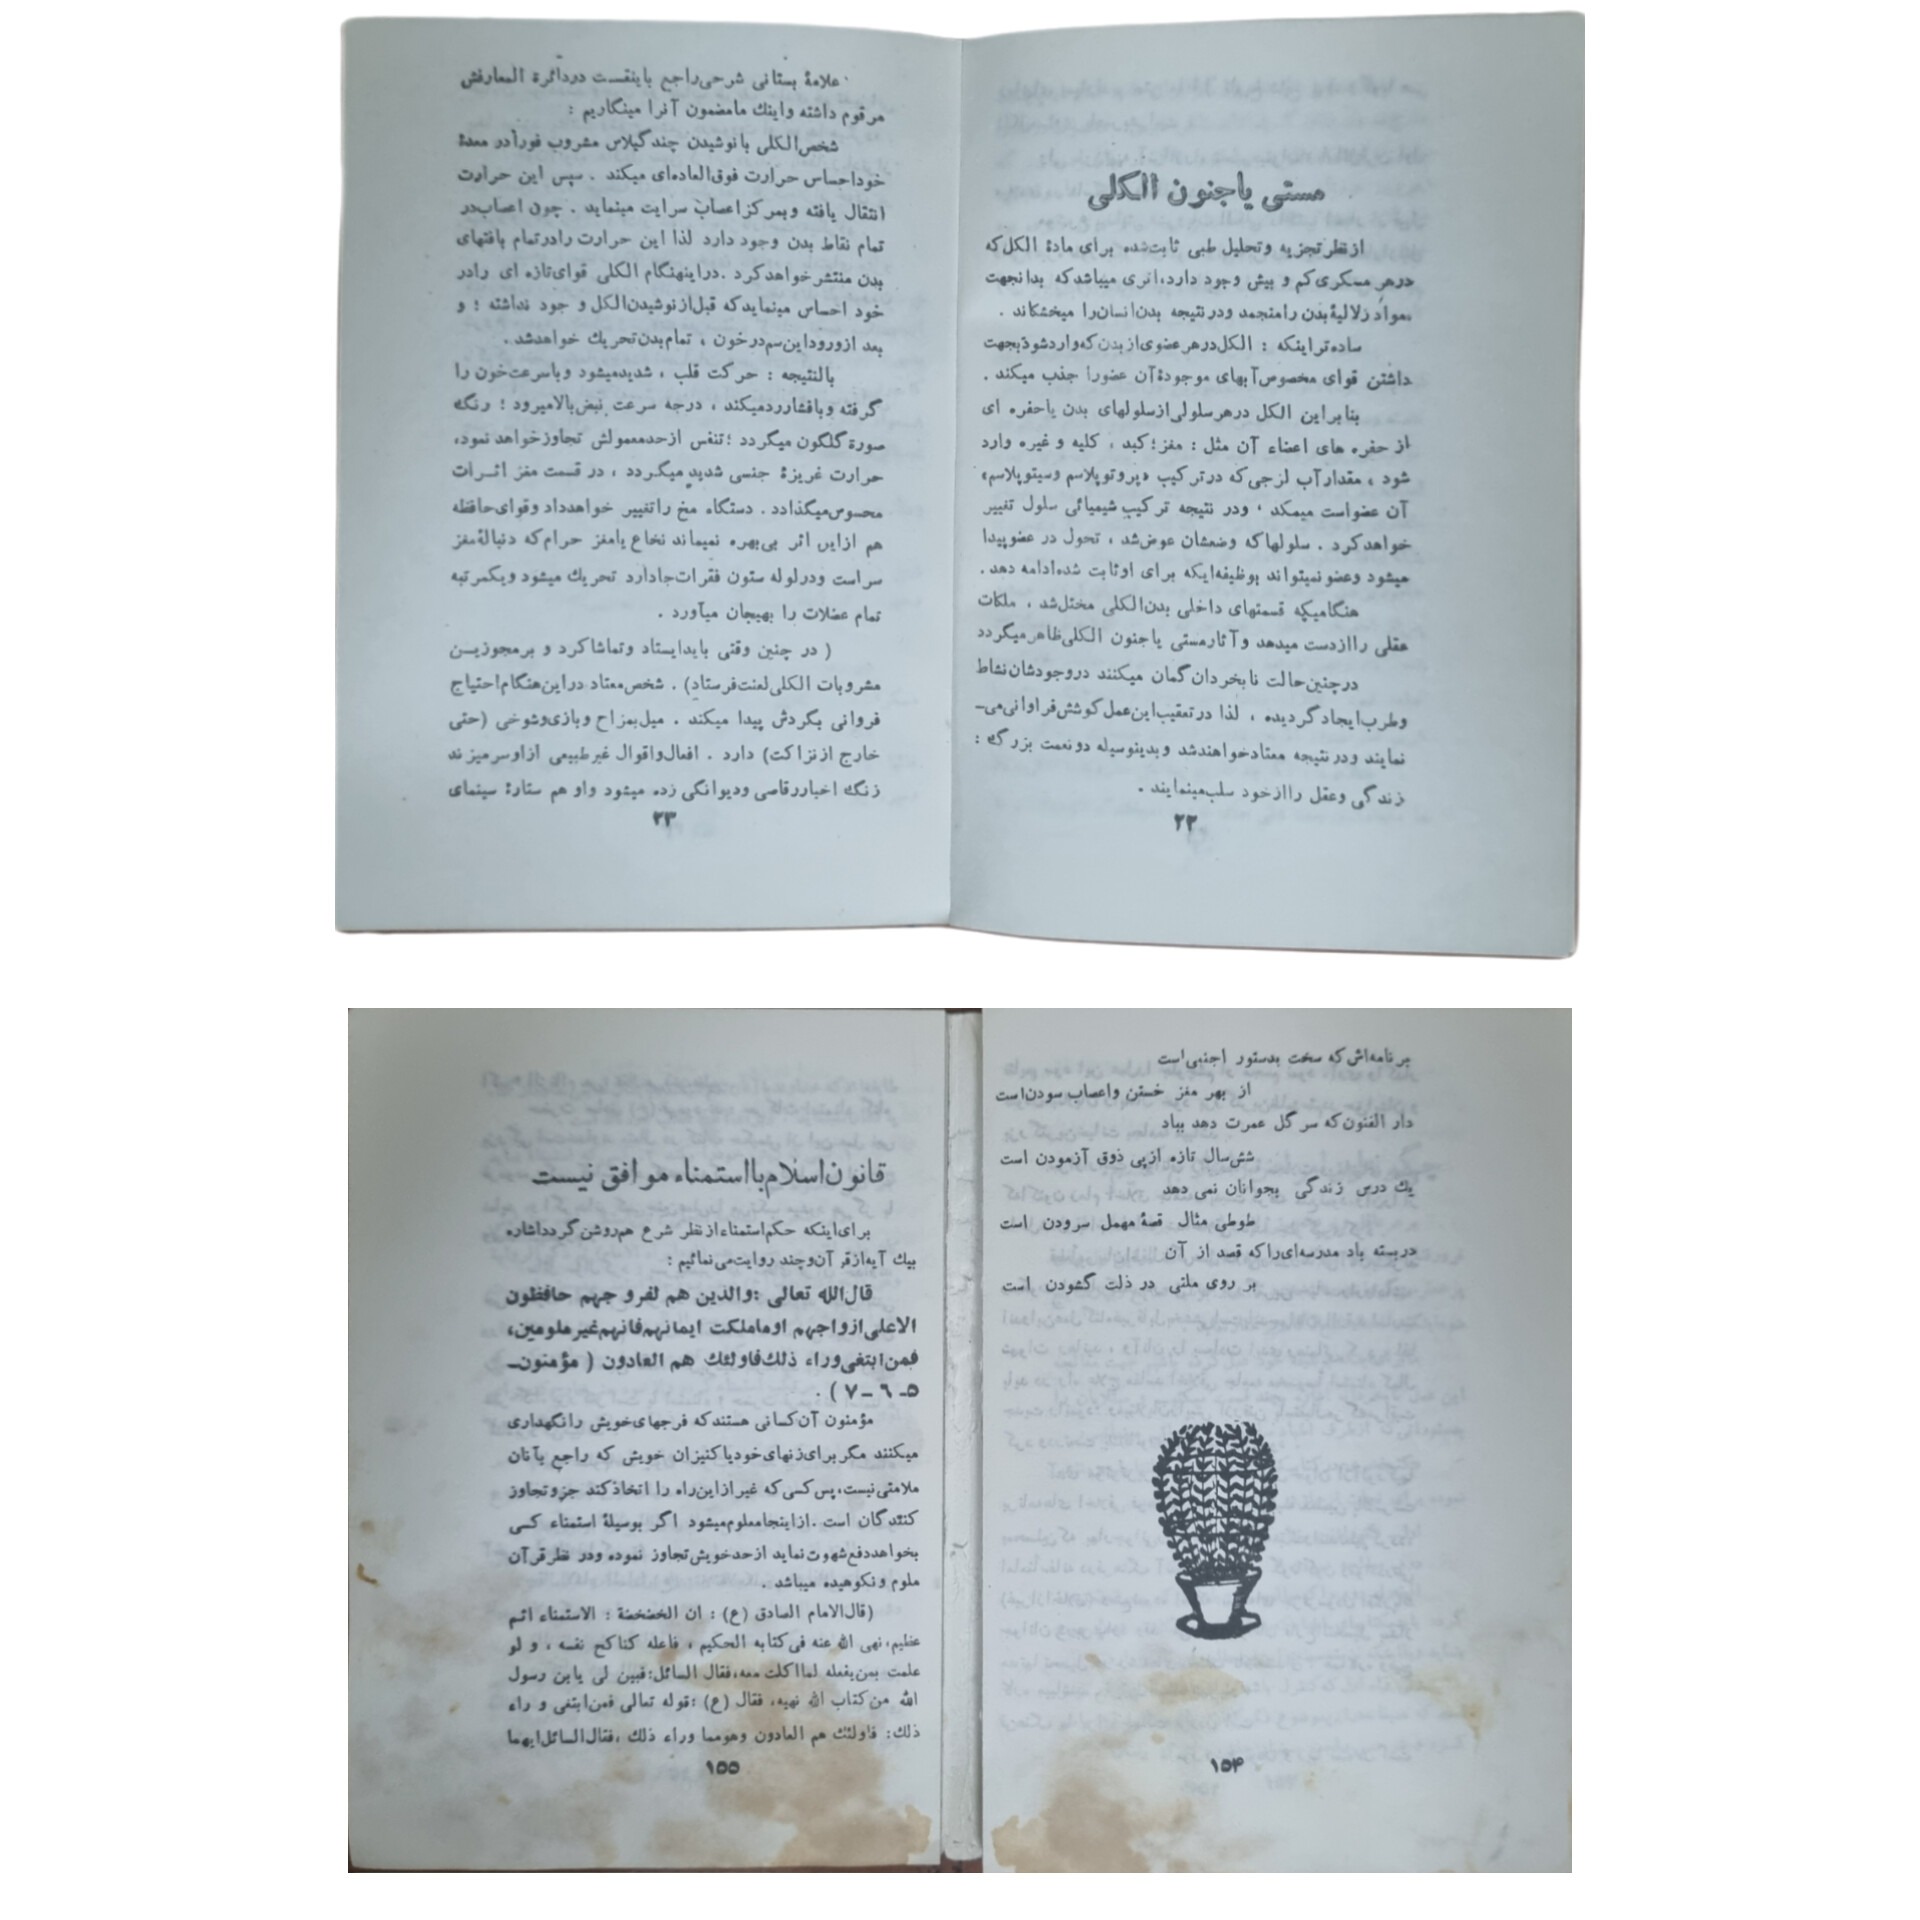 مستی یا جنون الکلی
از نظر تجزیه و تحلیل طبی ثابت شده برای مادۀ الکل که
در هر مسکری کم و بیش وجود دارد، اثری میباشد که بدانجهت
مواد زلالیۀ بدن را منجمد و در نتیجه بدن انسان را میخشکاند .
ساده تر اینکه : الکل در هر عضوی از بدن که وارد شود بجهت
داشتن قوای مخصوص آبهای موجودۀ آن عضو را جذب میکند .
بنابراین الکل در هر سلولی از سلولهای بدن یا حفره ای
از حفره های اعضاء آن مثل : مغز ؛ کبد ، کلیه و غیره وارد
شود ، مقدار آب لزجی که در ترکیب «پروتوپلاسم وسیتوپلاسم»
آن عضو است میمکد ، و در نتیجه ترکیب شیمیائی سلول تغییر
خواهد کرد . سلولها که وضعشان عوض شد ، تحول در عضو پیدا
میشود و عضو نمیتواند بوظیفه ایکه برای او ثابت شده ادامه دهد .
هنگامیکه قسمتهای داخلی بدن الکلی مختل شد ، ملکات
عقلی را از دست میدهد و آثار مستی یا جنون الکلی ظاهر میگردد
در چنین حالت نابخردان گمان میکنند در وجودشان نشاط
و طرب ایجاد گردیده ، لذا در تعقیب این عمل کوشش فراوانی می-
نمایند و در نتیجه معتاد خواهند شد و بدینوسیله دو نعمت بزرگ :
زندگی و عقل را از خود سلب مینمایند .
۲۲
علامۀ بستانی شرحی راجع باینقست در دائرة المعارفش
مرقوم داشته و اینك ما مضمون آنرا مینگاریم :
شخص الکلی با نوشیدن چند گیلاس مشروب فوراً در معدۀ
خود احساس حرارت فوق العاده ای میکند . سپس این حرارت
انتقال یافته و بمرکز اعصاب سرایت مینماید . چون اعصاب در
تمام نقاط بدن وجود دارد لذا این حرارت را در تمام بافتهای
بدن منتشر خواهد کرد . در اینهنگام الکلی قوای تازه ای را در
خود احساس مینماید که قبل از نوشیدن الکل و جود نداشته ؛ و
بعد از ورود این سم در خون ، تمام بدن تحریك خواهد شد .
بالنتیجه : حرکت قلب ، شدید میشود و با سرعت خون را
گرفته و با فشار رد میکند ، درجه سرعت نبض بالا میرود ؛ رنگ
صورة گلگون میگردد ؛ تنفس از حد معمولش تجاوز خواهد نمود،
حرارت غریزۀ جنسی شدید میگردد ، در قسمت مغز اثرات
محسوس میگذادد . دستگاه مخ را تغییر خواهد داد و قوای حافظه
هم از این اثر بی بهره نمیماند نخاع یا مغز حرام که دنبالۀ مغز
سر است و در لوله ستون فقرات جا دارد تحریك میشود و یکمرتبه
تمام عضلات را بهیجان میآورد .
( در چنین وقتی باید ایستاد و تماشا کرد و بر مجوزیـن
مشروبات الکلی لعنت فرستاد) . شخص معتاد در این هنگام احتیاج
فروانی بگردش پیدا میکند . میل بمزاح و بازی و شوخی (حتی
خارج از نزاکت) دارد . افعال و اقوال غیر طبیعی از او سر میزند
زنگ اخبار رقاصی و دیوانگی زده میشود و او هم ستارۀ سینمای
۲۳
برنامه اش که سخت بدستور اجنبی است
از بهر مغز خستن و اعصاب سودن است
دار الفنون که سر گل عمرت دهد بباد
شش سال تازه از پی ذوق آزمودن است
یك درس زندگی بجوانان نمی دهد
طوطی مثال قصۀ مهمل سرودن است
در بسته باد مدرسه ای را که قصد از آن
بر روی ملتی در ذلت گشودن است
۱۵۴
قانون اسلام با استمناء موافق نیست
برای اینکه حکم استمناء از نظر شرع هم روشن گردد اشاره
بیك آیه از قرآن و چند روایت می نمائیم :
قال الله تعالی : والذین هم لفروجهم حافظون
الا علی ازواجهم او ما ملکت ایمانهم فانهم غیر ملومین،
فمن ابتغی وراء ذلك فاولئك هم العادون ( مؤمنون-
۵- ۶ - ۷ ) .
مؤمنون آن کسانی هستند که فرجهای خویش را نگهداری
میکنند مگر برای زنهای خود یا کنیزان خویش که راجع بآنان
ملامتی نیست، پس کسی که غیر از این راه را اتخاذ کند جزو تجاوز
کنندگان است . از اینجا معلوم میشود اگر بوسیلۀ استمناء کسی
بخواهد دفع شهوت نماید از حد خویش تجاوز نموده و در نظر قرآن
ملوم و نکوهیده میباشد .
(قال الامام الصادق (ع) : ان الخضخضة : الاستمناء اثم
عظیم، نهی الله عنه فی کتابه الحکیم ، فاعله کناکح نفسه ، و لو
علمت بمن یفعله لما اکلت معه، فقال السائل : فبین لی یا بن رسول
الله من کتاب الله نهیه، فقال (ع) : قوله تعالی فمن ابتغی و راء
ذلك : فاولئك هم العادون و هو مما وراء ذلك ، فقال السائل ایهما
۱۵۵